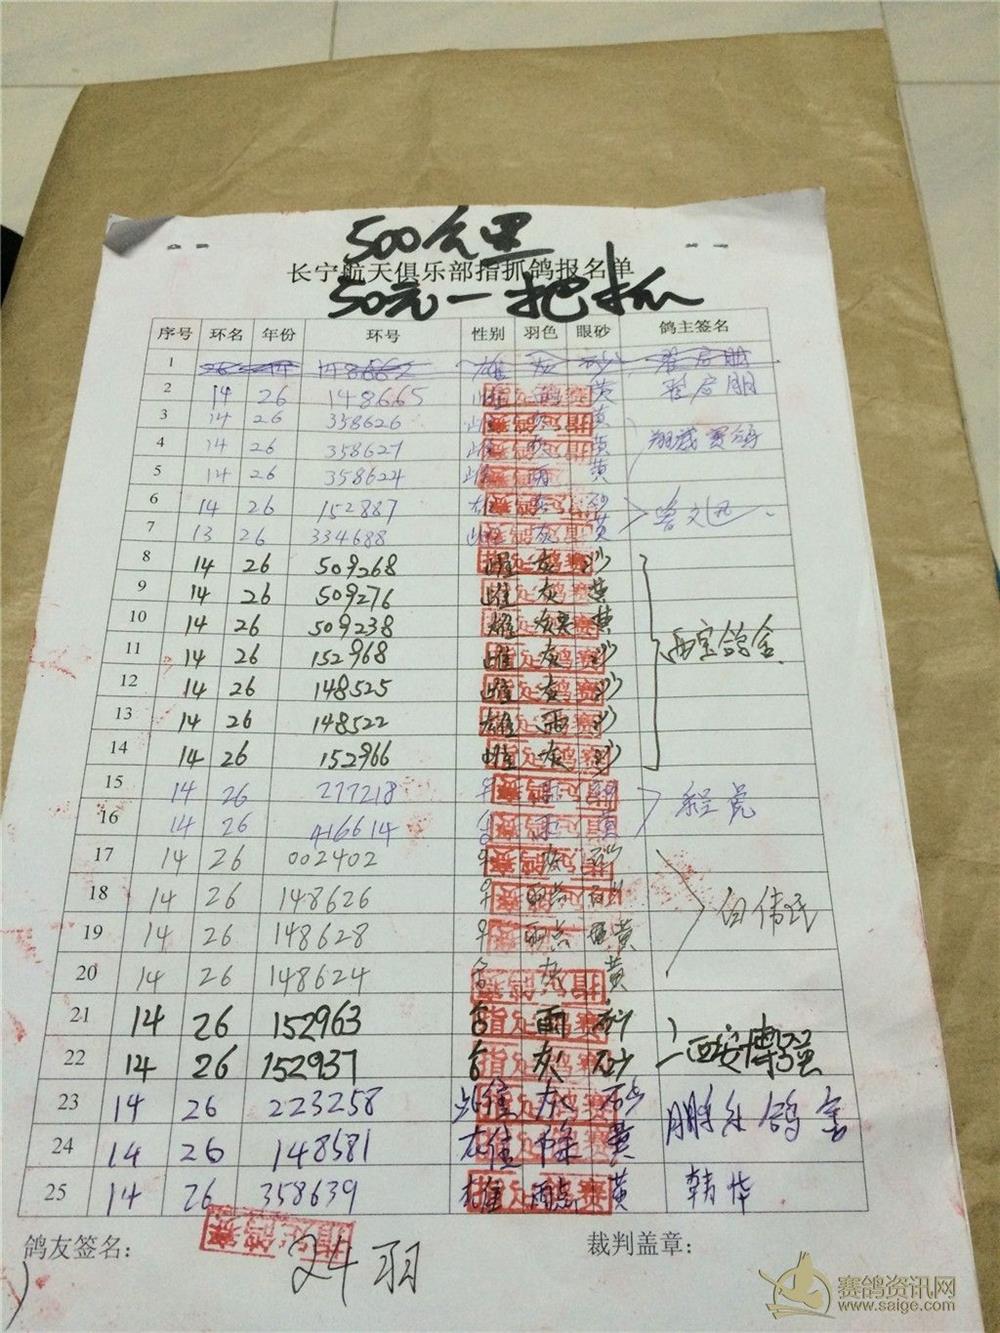 500公里
长宁航天俱乐部指抓鸽报名单
50元一把抓
序号 环名 年份 环号 性别 羽色 眼砂 鸽主签名
1 雄 灰 砂
2 14 26 148665 雌 黄
3 14 26 358626 雌 灰 黄
4 14 26 358627 雌 灰 黄 翔威赛鸽
5 14 26 358624 雌 雨 黄
6 14 26 152887 雄 灰 砂
7 13 26 334688 雌 灰 黄
8 14 26 509268 雌 灰 砂
9 14 26 509276 雌 灰 黄
10 14 26 509238 雄 黄
11 14 26 152968 雌 灰 砂 西宝鸽舍
12 14 26 148525 雌 灰 砂
13 14 26 148522 雄 雨 砂
14 14 26 152966 雌 灰 砂
15 14 26 277218 ♀
16 14 26 416614 黄
17 14 26 002402 ♀ 灰 砂
18 14 26 148626 ♀ 雨点
19 14 26 148628 ♀ 雨点 黄 白伟民
20 14 26 148624 灰 黄
21 14 26 152963 雨 砂
22 14 26 152937 灰 砂 西安博强
23 14 26 223258 雌 灰 砂 鸽舍
24 14 26 148581 雄 黄
25 14 26 358639 雄 雨点 黄 韩华
鸽友签名：
指定鸽赛
24羽
裁判盖章：
赛鸽资讯网
www.saige.com